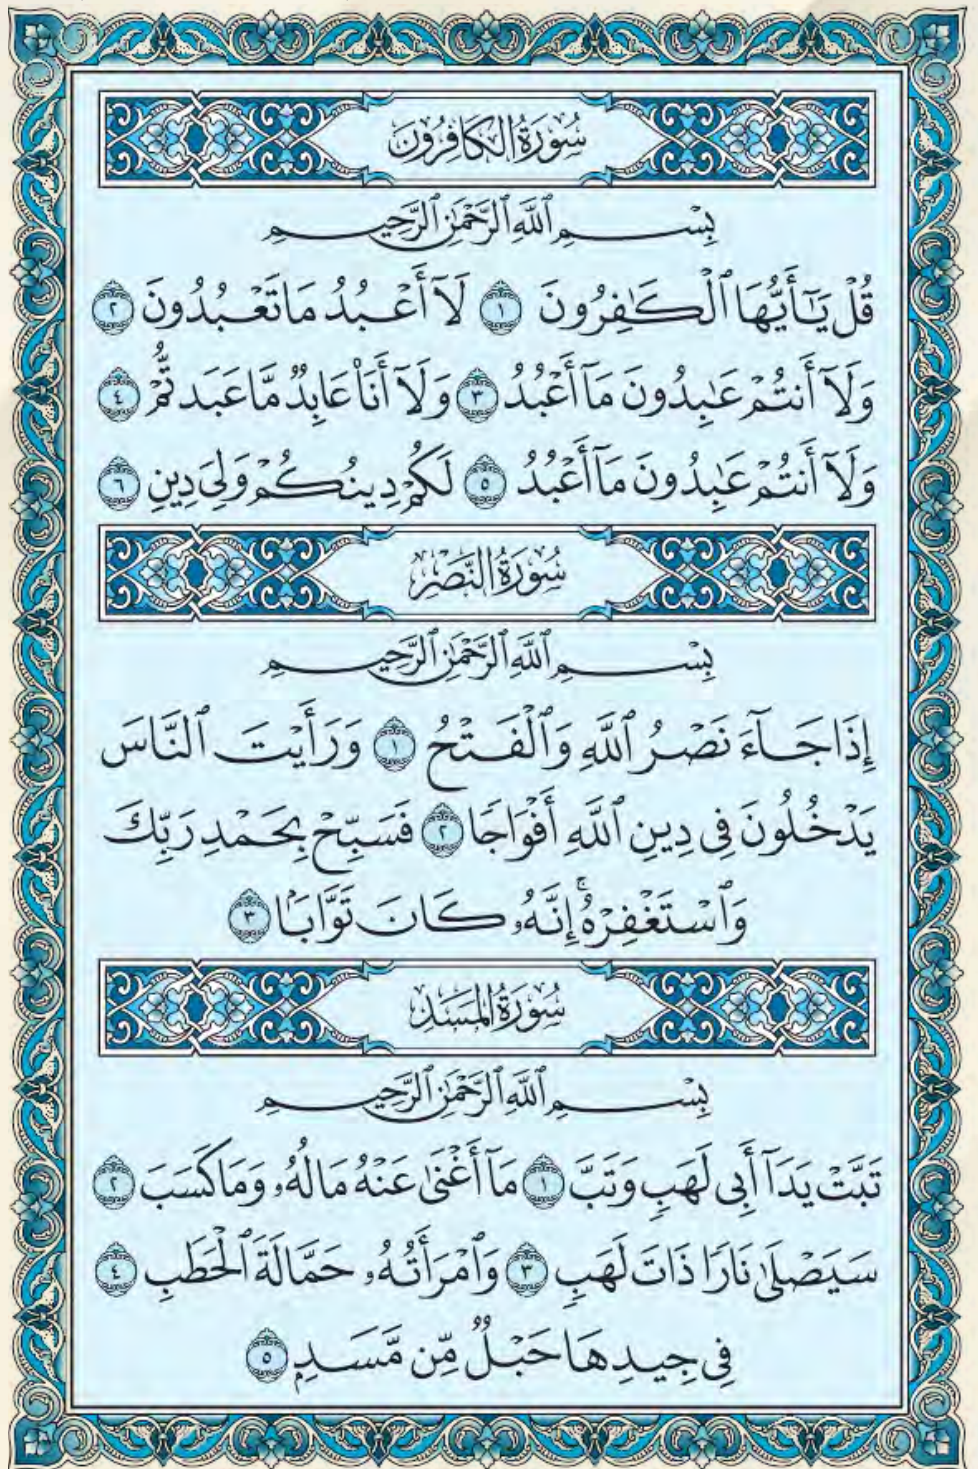 سُورَةُ الكَافِرُونَ
بِسْمِ ٱللَّهِ ٱلرَّحْمَٰنِ ٱلرَّحِيمِ
قُلْ يَٰٓأَيُّهَا ٱلْكَٰفِرُونَ ١ لَآ أَعْبُدُ مَا تَعْبُدُونَ ٢
وَلَآ أَنتُمْ عَٰبِدُونَ مَآ أَعْبُدُ ٣ وَلَآ أَنَا۠ عَابِدٌ مَّا عَبَدتُّمْ ٤
وَلَآ أَنتُمْ عَٰبِدُونَ مَآ أَعْبُدُ ٥ لَكُمْ دِينُكُمْ وَلِىَ دِينِ ٦
سُورَةُ النَّصْرِ
بِسْمِ ٱللَّهِ ٱلرَّحْمَٰنِ ٱلرَّحِيمِ
إِذَا جَآءَ نَصْرُ ٱللَّهِ وَٱلْفَتْحُ ١ وَرَأَيْتَ ٱلنَّاسَ
يَدْخُلُونَ فِى دِينِ ٱللَّهِ أَفْوَاجًا ٢ فَسَبِّحْ بِحَمْدِ رَبِّكَ
وَٱسْتَغْفِرْهُ ۚ إِنَّهُۥ كَانَ تَوَّابًۢا ٣
سُورَةُ المَسَدِ
بِسْمِ ٱللَّهِ ٱلرَّحْمَٰنِ ٱلرَّحِيمِ
تَبَّتْ يَدَآ أَبِى لَهَبٍ وَتَبَّ ١ مَآ أَغْنَىٰ عَنْهُ مَالُهُۥ وَمَا كَسَبَ ٢
سَيَصْلَىٰ نَارًا ذَاتَ لَهَبٍ ٣ وَٱمْرَأَتُهُۥ حَمَّالَةَ ٱلْحَطَبِ ٤
فِى جِيدِهَا حَبْلٌ مِّن مَّسَدٍۭ ٥